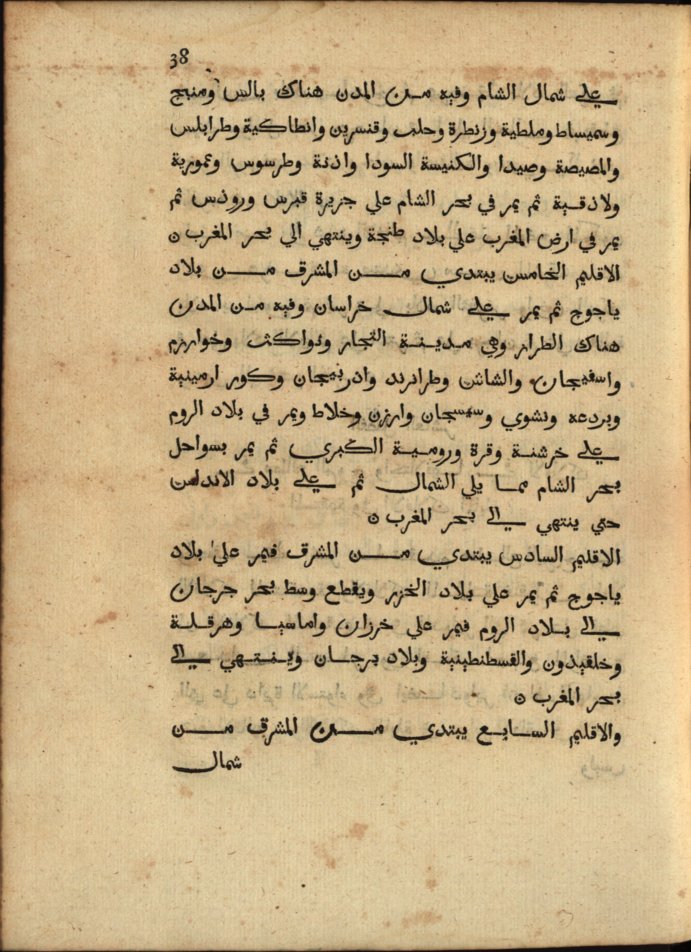 38
علي شمال الشام وفيه من المدن هناك بالس ومنبج
وسميساط وملطية وزنطرة وحلب وقنسرين وانطاكية وطرابلس
والمصيصة وصيدا والكنيسة السودا واذنة وطرسوس وعمورية
ولاذقية ثم يمر في بحر الشام علي جزيرة قبرس ورودس ثم
يمر في ارض المغرب علي بلاد طنجة وينتهي الي بحر المغرب ن
الاقليم الخامس يبتدي من المشرق من بلاد
ياجوج ثم يمر علي شمال خراسان وفيه من المدن
هناك الطراز وهي مدينة التجار ونواكث وخوارزم
واسفيجان والشاش وطرابزند واذربيجان وكور ارمينية
وبردعه ونشوي وارزن وخلاط ويمر في بلاد الروم
علي خرشنة وقرة ورومية الكبري ثم يمر بسواحل
بحر الشام مما يلي الشمال ثم علي بلاد الاندلس
حتي ينتهي الي بحر المغرب ن
الاقليم السادس يبتدي من المشرق فيمر علي بلاد
ياجوج ثم يمر علي بلاد الخزر ويقطع وسط بحر جرجان
الي بلاد الروم فيمر علي خرزان واماسيا وهرقلة
وخلقيدون والقسطنطينية وبلاد برجان وينتهي الي
بحر المغرب ن
والاقليم السابع يبتدي من المشرق من
شمال